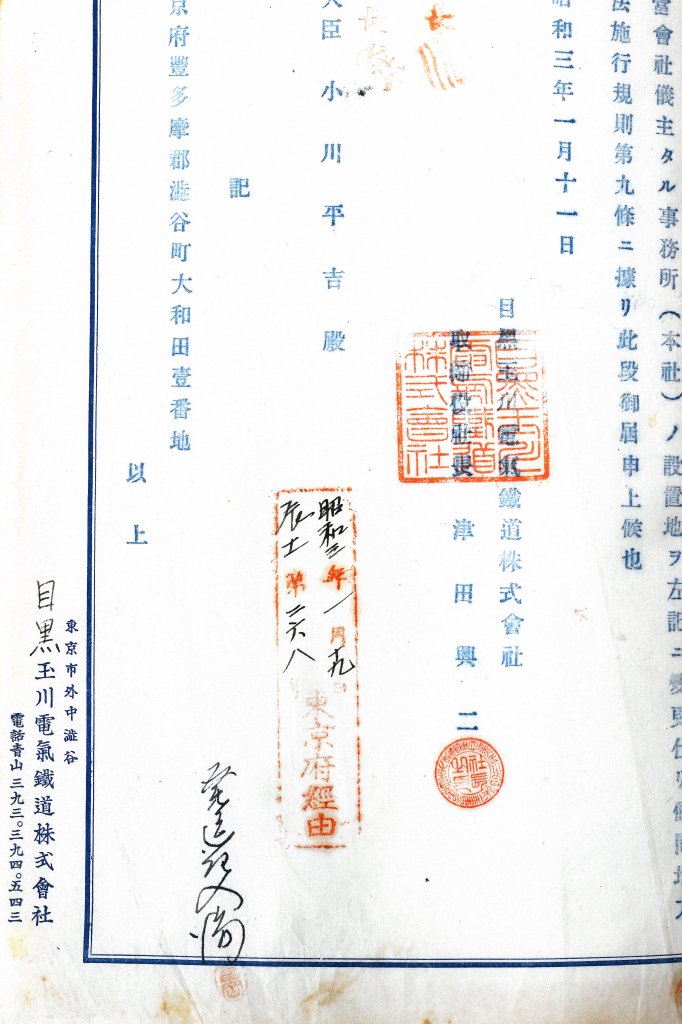 當會社儀主タル事務所(本社)ノ設置地ヲ左記ニ變更仕
法施行規則第九條ニ據リ此段御屆申上候也
昭和三年一月十一日
目黑玉川電氣鐵道株式會社
取締役社長 津田興二
目黑玉川電氣鐵道株式會社
社長
大臣 小川平吉殿
昭和三年一月十九日
辰土第二六八
東京府經由
記
京府豐多摩郡澁谷町大和田壹番地
以上
東京市外中澁谷
目黒玉川電氣鐵道株式會社
電話靑山三九三。三九四。五四三